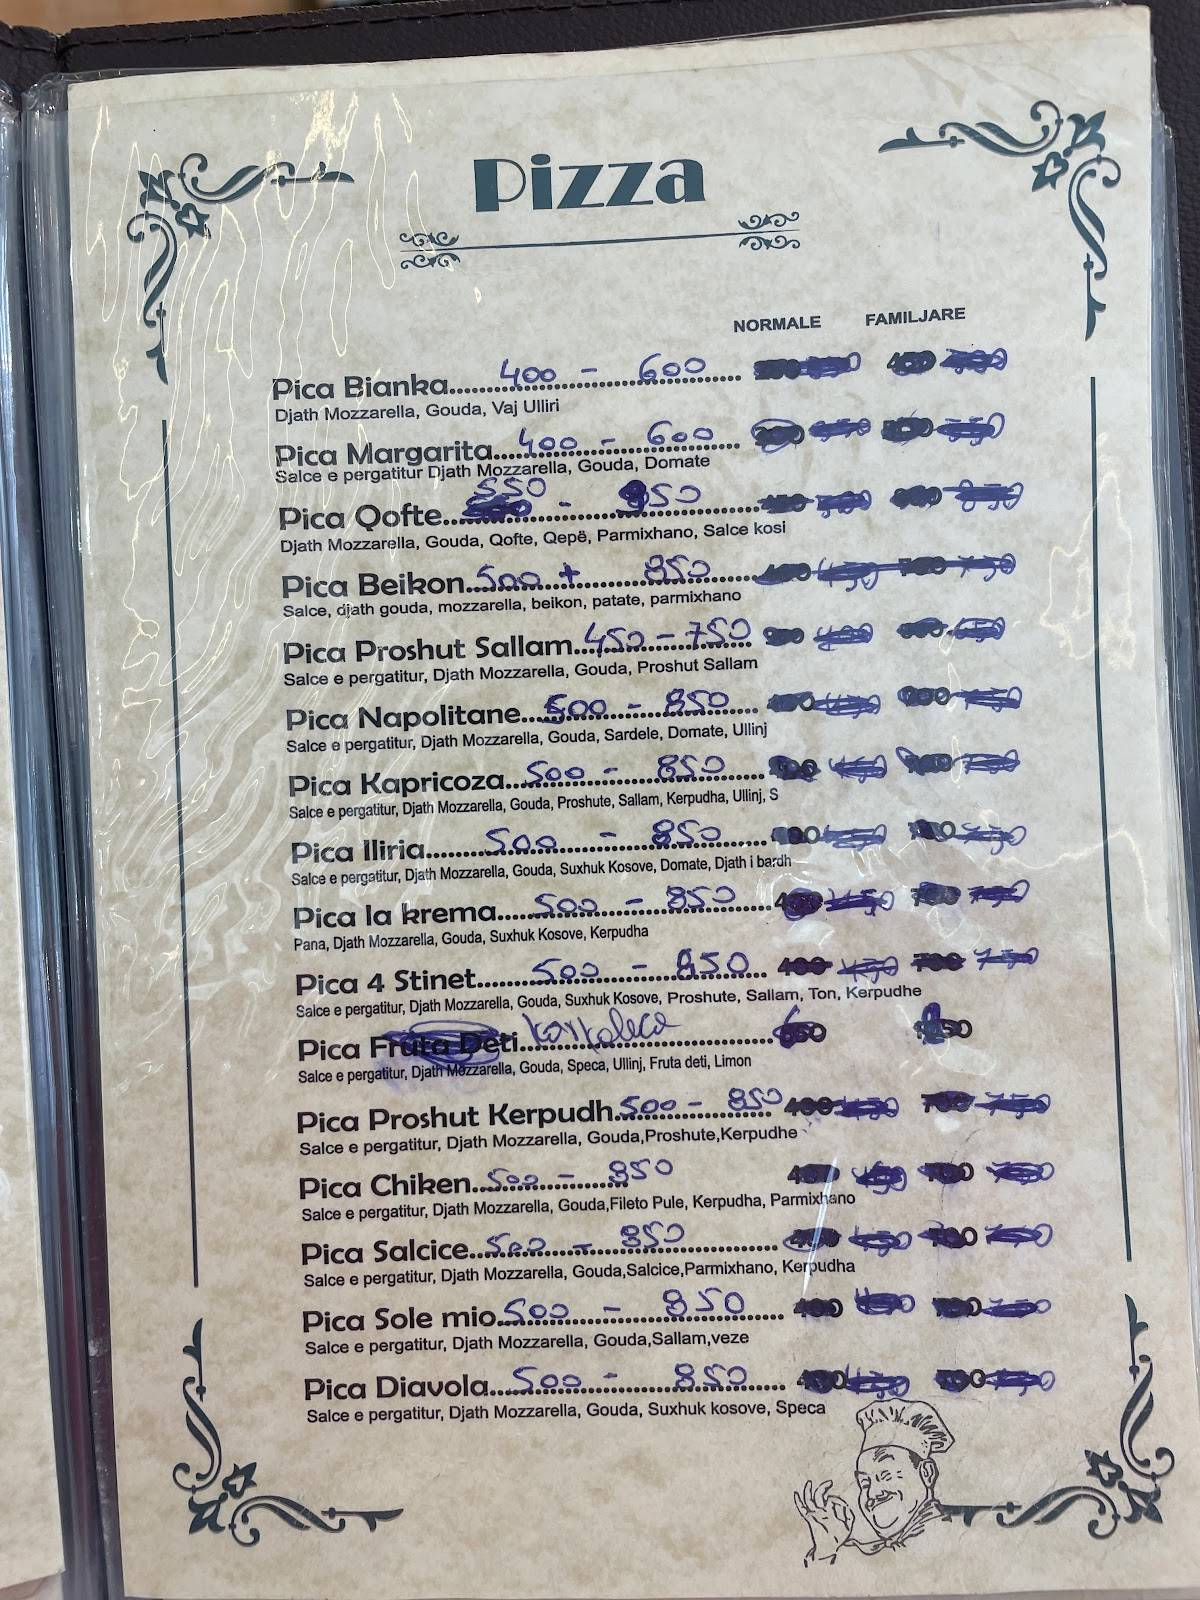 Pizza
NORMALE FAMILJARE
Pica Bianka 400 - 600
Djath Mozzarella, Gouda, Vaj Ulliri
Pica Margarita 400 - 600
Salce e pergatitur Djath Mozzarella, Gouda, Domate
Pica Qofte 550 - 950
Djath Mozzarella, Gouda, Qofte, Qepë, Parmixhano, Salce kosi
Pica Beikon 500 + 850
Salce, djath gouda, mozzarella, beikon, patate, parmixhano
Pica Proshut Sallam 450 - 750
Salce e pergatitur, Djath Mozzarella, Gouda, Proshut Sallam
Pica Napolitane 500 - 850
Salce e pergatitur, Djath Mozzarella, Gouda, Sardele, Domate, Ullinj
Pica Kapricoza 500 - 850
Salce e pergatitur, Djath Mozzarella, Gouda, Proshute, Sallam, Kerpudha, Ullinj, S
Pica Iliria 500 - 850
Salce e pergatitur, Djath Mozzarella, Gouda, Suxhuk Kosove, Domate, Djath i bardh
Pica la krema 500 - 850
Pana, Djath Mozzarella, Gouda, Suxhuk Kosove, Kerpudha
Pica 4 Stinet 500 - 850 400 450 700 750
Salce e pergatitur, Djath Mozzarella, Gouda, Suxhuk Kosove, Proshute, Sallam, Ton, Kerpudhe
Pica Fruta Deti
Salce e pergatitur, Djath Mozzarella, Gouda, Speca, Ullinj, Fruta deti, Limon
Pica Proshut Kerpudh 500 - 850 400 450 700 750
Salce e pergatitur, Djath Mozzarella, Gouda,Proshute,Kerpudhe
Pica Chiken 500 - 850
Salce e pergatitur, Djath Mozzarella, Gouda,Fileto Pule, Kerpudha, Parmixhano
Pica Salcice 500 - 850
Salce e pergatitur, Djath Mozzarella, Gouda,Salcice,Parmixhano, Kerpudha
Pica Sole mio 500 - 850
Salce e pergatitur, Djath Mozzarella, Gouda,Sallam,veze
Pica Diavola 500 - 850
Salce e pergatitur, Djath Mozzarella, Gouda, Suxhuk kosove, Speca